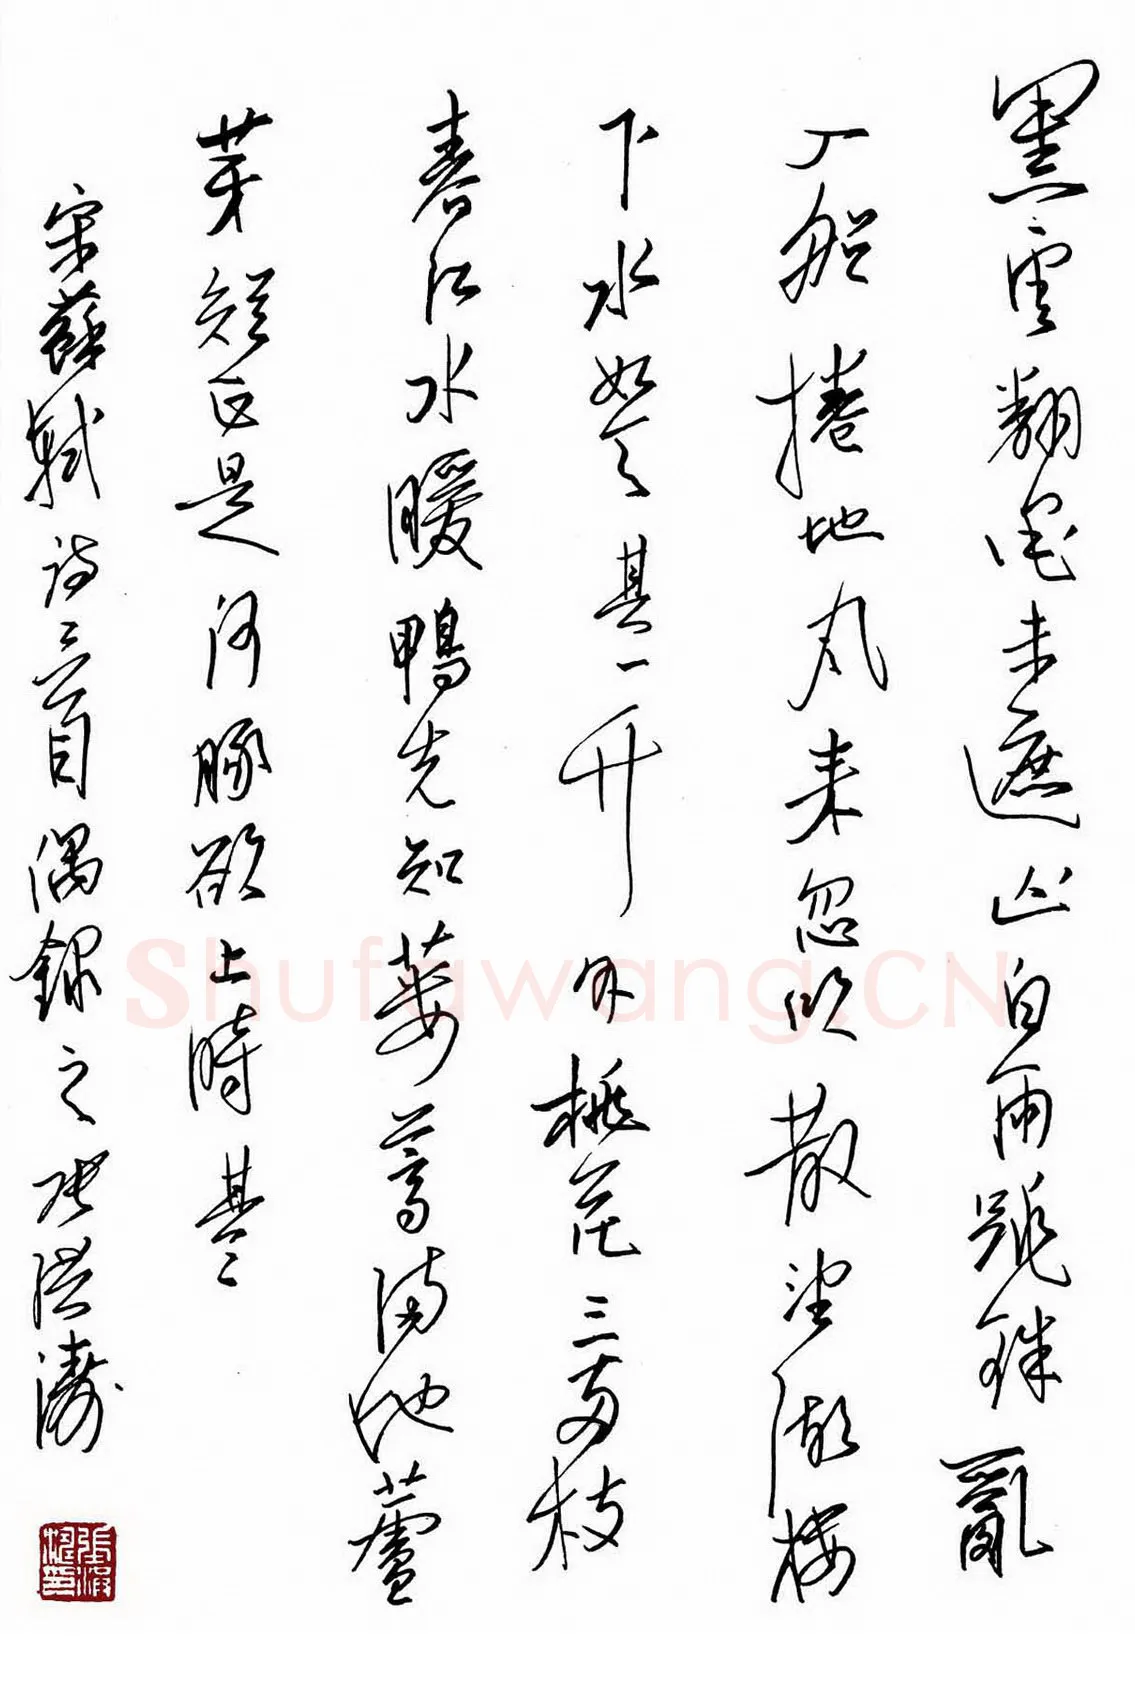 黑雲翻墨未遮山白雨跳珠亂
入船捲地風來忽吹散望湖樓
下水如天其一竹外桃花三兩枝
春江水暖鴨先知蔞蒿滿地蘆
芽短正是河豚欲上時其二
宋蘇軾詩二首偶錄之張濤
Shufawang.CN